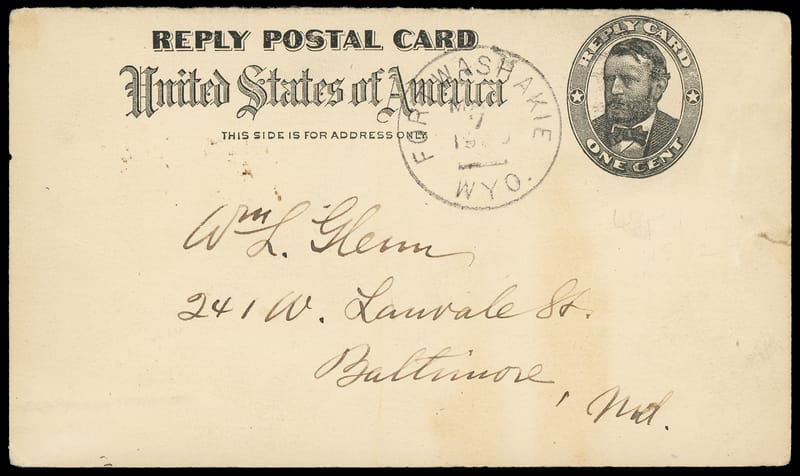 REPLY POSTAL CARD
United States of America
THIS SIDE IS FOR ADDRESS ONLY
REPLY CARD
ONE CENT
FORT WASHAKIE
7
WYO.
Wm L. Glenn
241 W. Lanvale St.
Baltimore, Md.